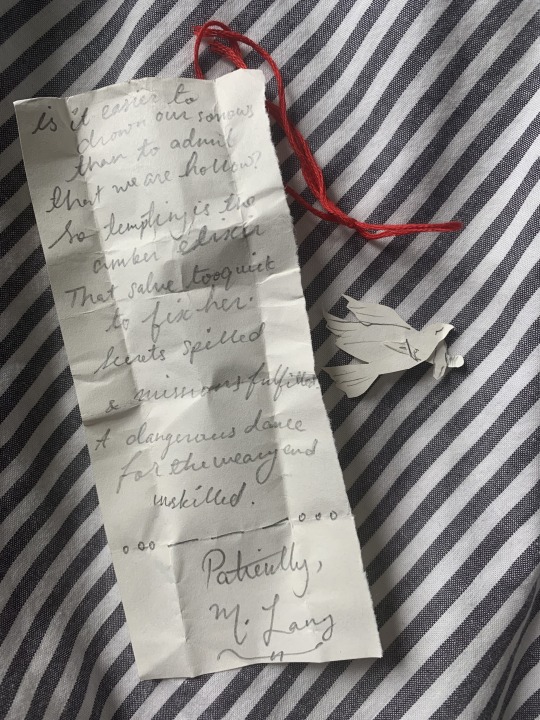 is it easier to
drown our sorrows
than to admit
that we are hollow?
So tempting is the
amber elixir
That salve too quick
to fix her.
Secrets spilled
& missions fulfilled
A dangerous dance
for the weary and
unskilled.
Patiently,
M. Lang